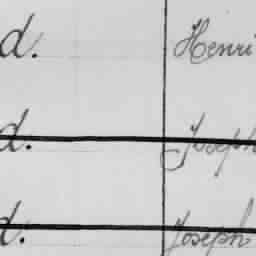 d. Henri
d. Joseph
d. Joseph